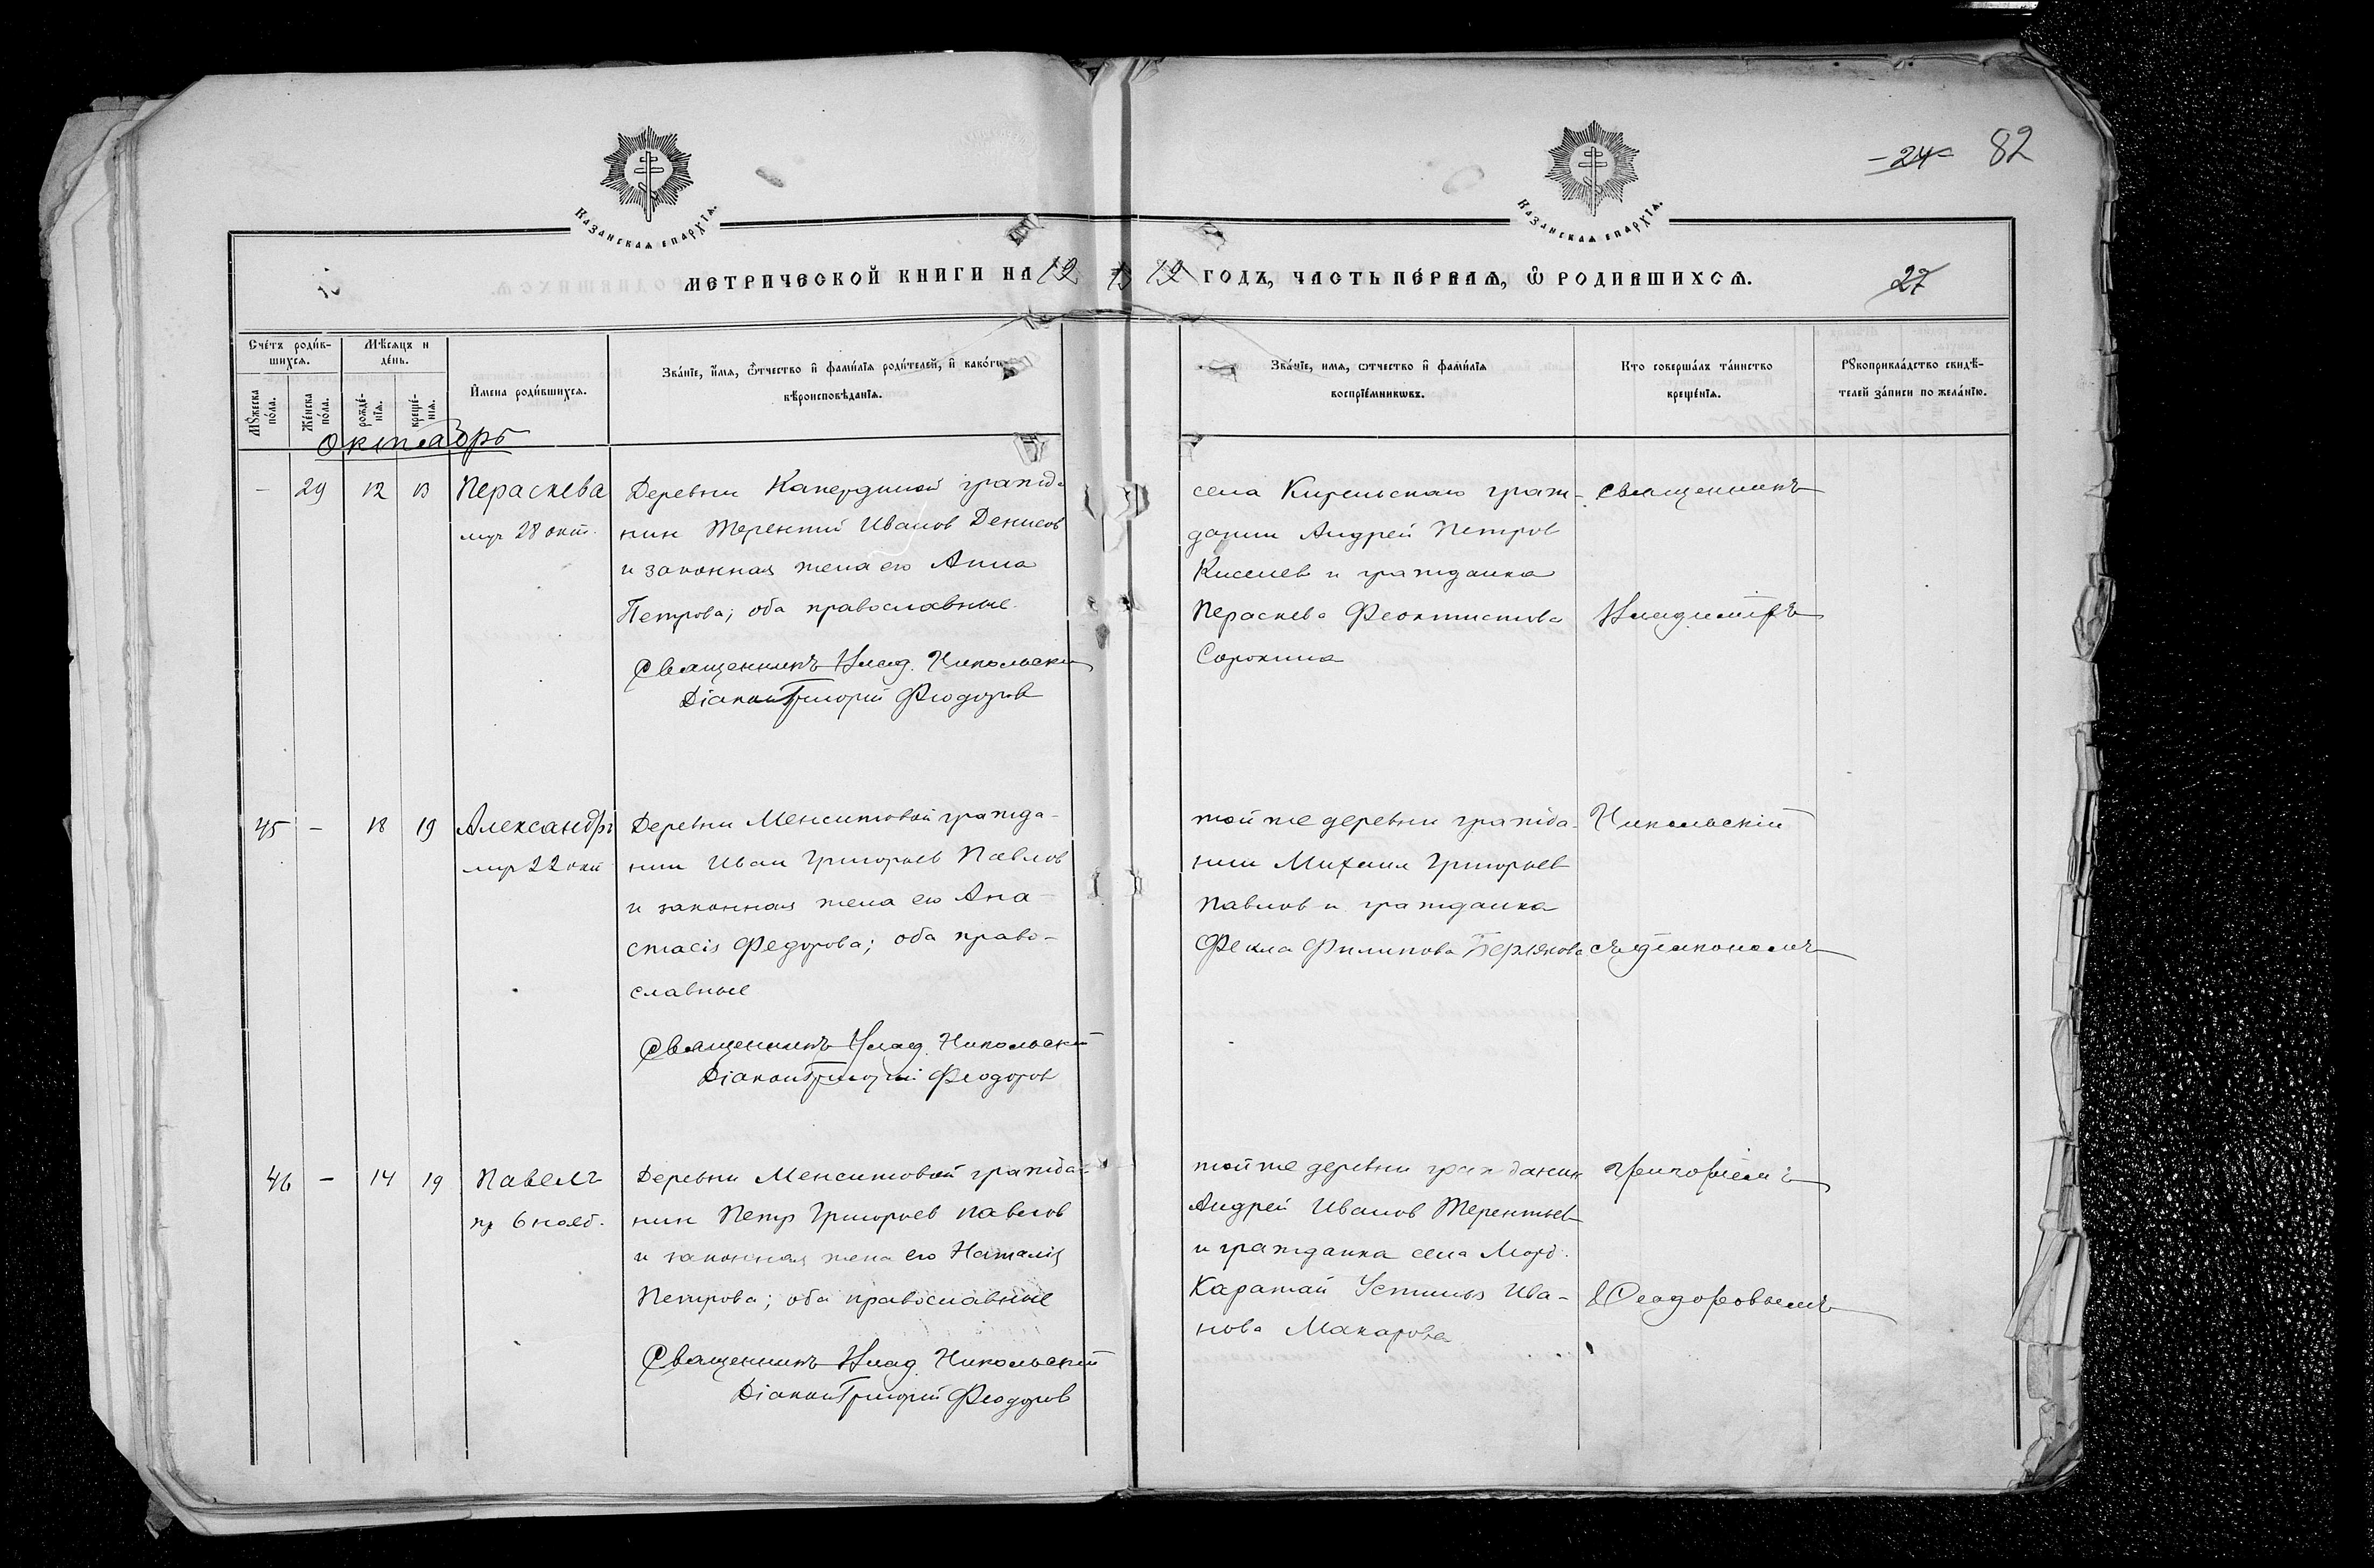 Казанская епархїа.
Казанская епархїа.
24 82
МЕТРИЧЕСКОЙ КНИГИ НА 19 19 ГОДЪ, ЧАСТЬ ПЕРВАЯ, Ѿ РОДИВШИХСѦ.
27
Счéтъ роди́в-
шихсѧ.
Мѣсѧцъ и
дéнь.
Мꙋжеска
по́ла.
Жéнска
по́ла.
рождé-
нїѧ.
крещé-
нїѧ.
И҆мена роди́вшихсѧ.
Звáнїе, и҆́мѧ, ѻ҆́тчество и҆ фами́лїѧ роди́телей, и҆ какóгѡ
вѣроисповѣ́данїѧ.
Звáнїе, имѧ, ѻтчество и҆ фами́лїѧ
воспрїéмникѡвъ.
Кто совершáлъ тáинство
крещéнїѧ.
Рꙋкоприклáдство свидѣ́-
телей зáписи по желáнїю.
Октябрь
- 29 12 13 Пераскева
муч 28 окт.
Деревни гражда
нин Терентий Иванов Денисов
и законная жена его Анна
Петрова; оба православные.
Священникъ Влад. Никольский
Дiакон Григорiй Феодоров
села Кирельскаго граж-
данин Андрей Петров
Киселев и гражданка
Пераскева Феоктистова
Сорокина
Священникъ
Владимiръ
45 - 18 19 Александръ
мук 22 окт
Деревни Менситовой гражда-
нин Иван Григорьев Павлов
и законная жена его Ана-
стасiя Федорова; оба право-
славные
Священникъ Влад. Никольскiй
Дiакон Григорiй Феодоров
той же деревни гражда-
нин Михаил Григорьев
Павлов и гражданка
Фекла Филипова
Никольскiй
съ дiакономъ
46 - 14 19 Павелъ
пр 6 нояб.
Деревни Менситовой гражда-
нин Петр Григорьев Павлов
и законная жена его Наталiя
Петрова; оба православные
Священникъ Влад. Никольскiй
Дiакон Григорiй Феодоров
той же деревни гражданин
Андрей Иванов Терентьев
и гражданка села Морд.
Каратай Устинья Ива-
нова Макарова
Григорiемъ
Феодоровымъ